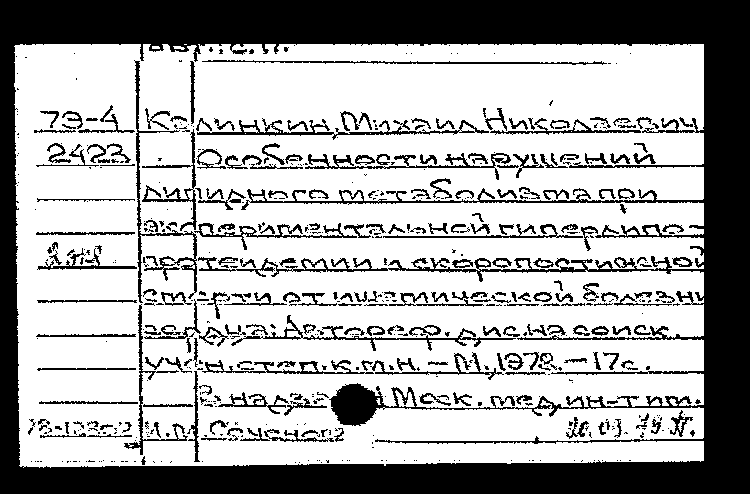 79-4 Калинкин, Михаил Николаевич
2423 Особенности нарушений
липидного метаболизма при
экспериментальной гиперлипо-
2 экз протеидемии и скоропостижной
смерти от ишемической болезни
сердца: Автореф. дис. на соиск.
учен. степ. к.м.н. - М., 1978. - 17с.
В надзаг. 1 Моск. мед. ин-т им.
78-13302 И.М. Сеченова